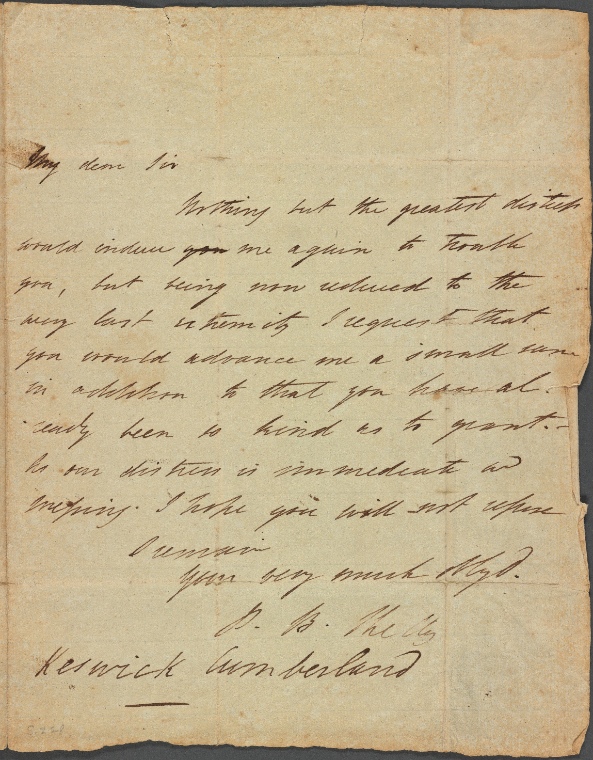 My dear Sir
Nothing but the greatest distress
would induce you me again to trouble
you, but being now reduced to the
very last extremity I request that
you would advance me a small sum
in addition to that you have al-
ready been so kind as to grant.—
As our distress is immediate and
pressing. I hope you will not refuse
I remain
Your very much obligd.
P. B. Shelley
Keswick Cumberland